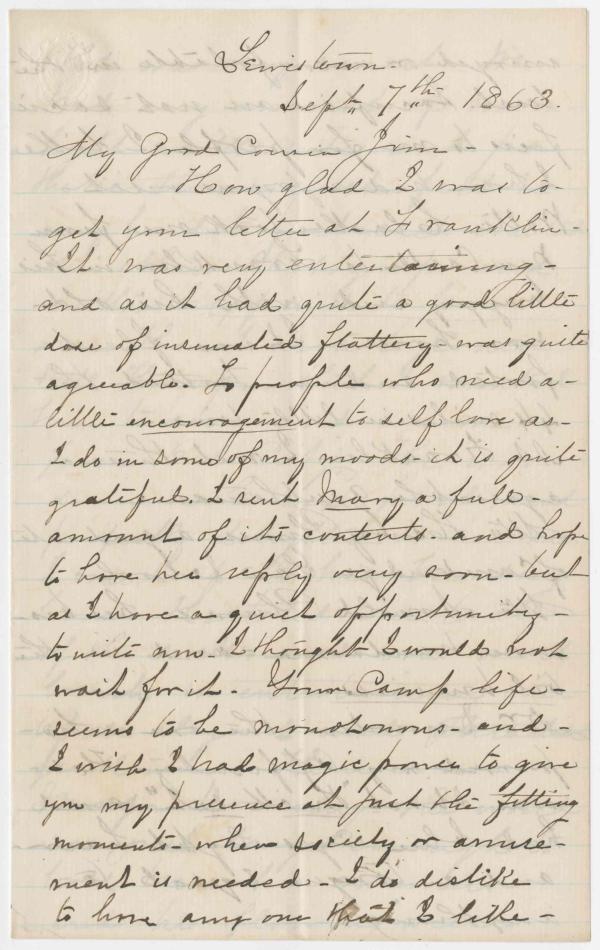 Lewistown.
Sept,, 7th 1863.
My Good Cousin Jim -
How glad I was to-
get your letter at Franklin-
It was very entertaining-
and as it had quite a good little
dose of insinuated flattery- was quite
agreeable. To people who need a-
little encouragement to self love as-
I do in some of my moods- it is quite
grateful. I sent Mary a full-
amount of its contents- and hope
to have her reply very soon- but
as I have a quiet opportunity-
to write now- I thought I would not
wait for it- Your Camp life-
seems to be monotonous- and-
I wish I had magic power to give
you my presence at just the fitting
moments- when society or amuse-
ment is needed- I do dislike
to have any one that I like-